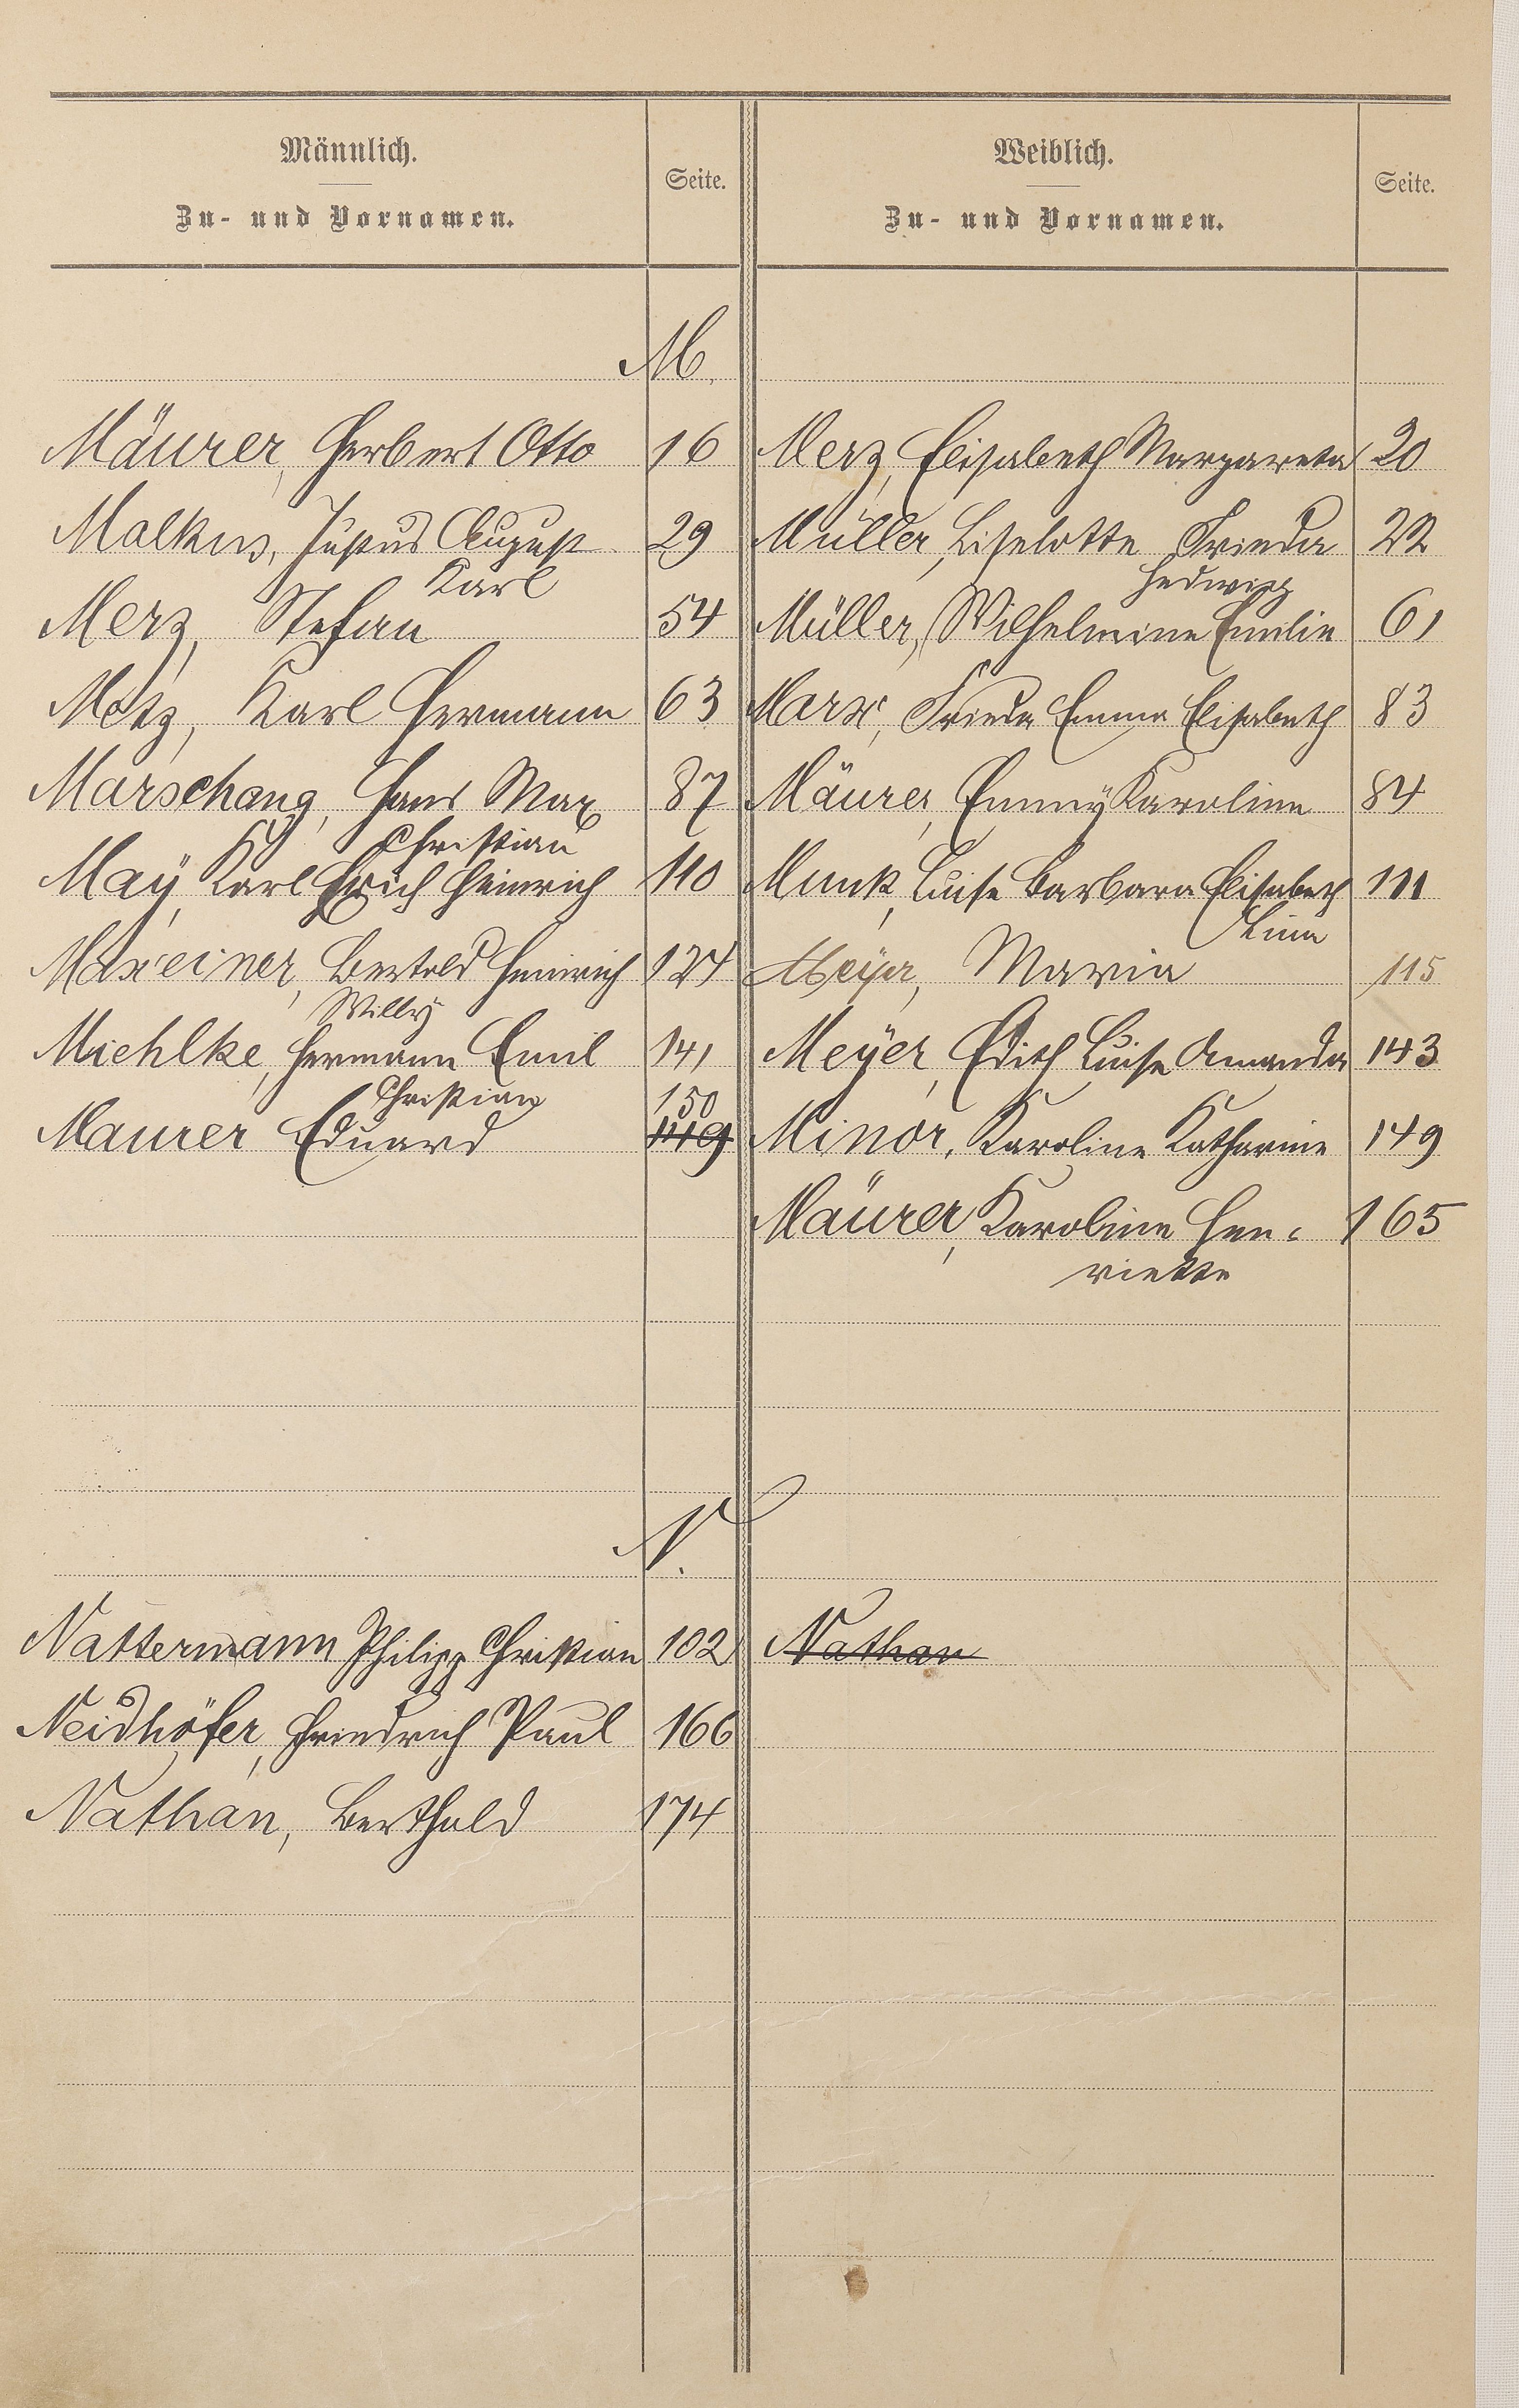 Männlich.
Zu- und Vornamen.
Seite.
Weiblich.
Zu- und Vornamen.
Seite.
M.
Mäurer, Herbert Otto 16 Merz, Elisabeth Margareta 20
Malkus, Justus August 29 Müller, Liselotte Frieda 22
Karl Hedwig
Merz, Stefan 54 Müller, Wilhelmine Emilie 61
Metz, Karl Hermann 63 Marx, Frieda Emma Elisabeth 83
Marschang, Hans Max 87 Mäurer, Emmy Karoline 84
Christian
May, Karl Erich Heinrich 110 Munk, Luise Barbara Elisabeth 111
Lina
Maxeiner, Bertold Heinrich 124 Meyer, Maria 115
Willy
Miehlke, Hermann Emil 141 Meyer, Edith Luise Amanda 143
Christian 150
Maurer Eduard 149 Minor, Karoline Katharine 149
Mäurer, Karoline Hen- 165
riette
N.
Nattermann Philipp Christian 102 Nathan
Neidhöfer, Friedrich Paul 166
Nathan, Berthold 174